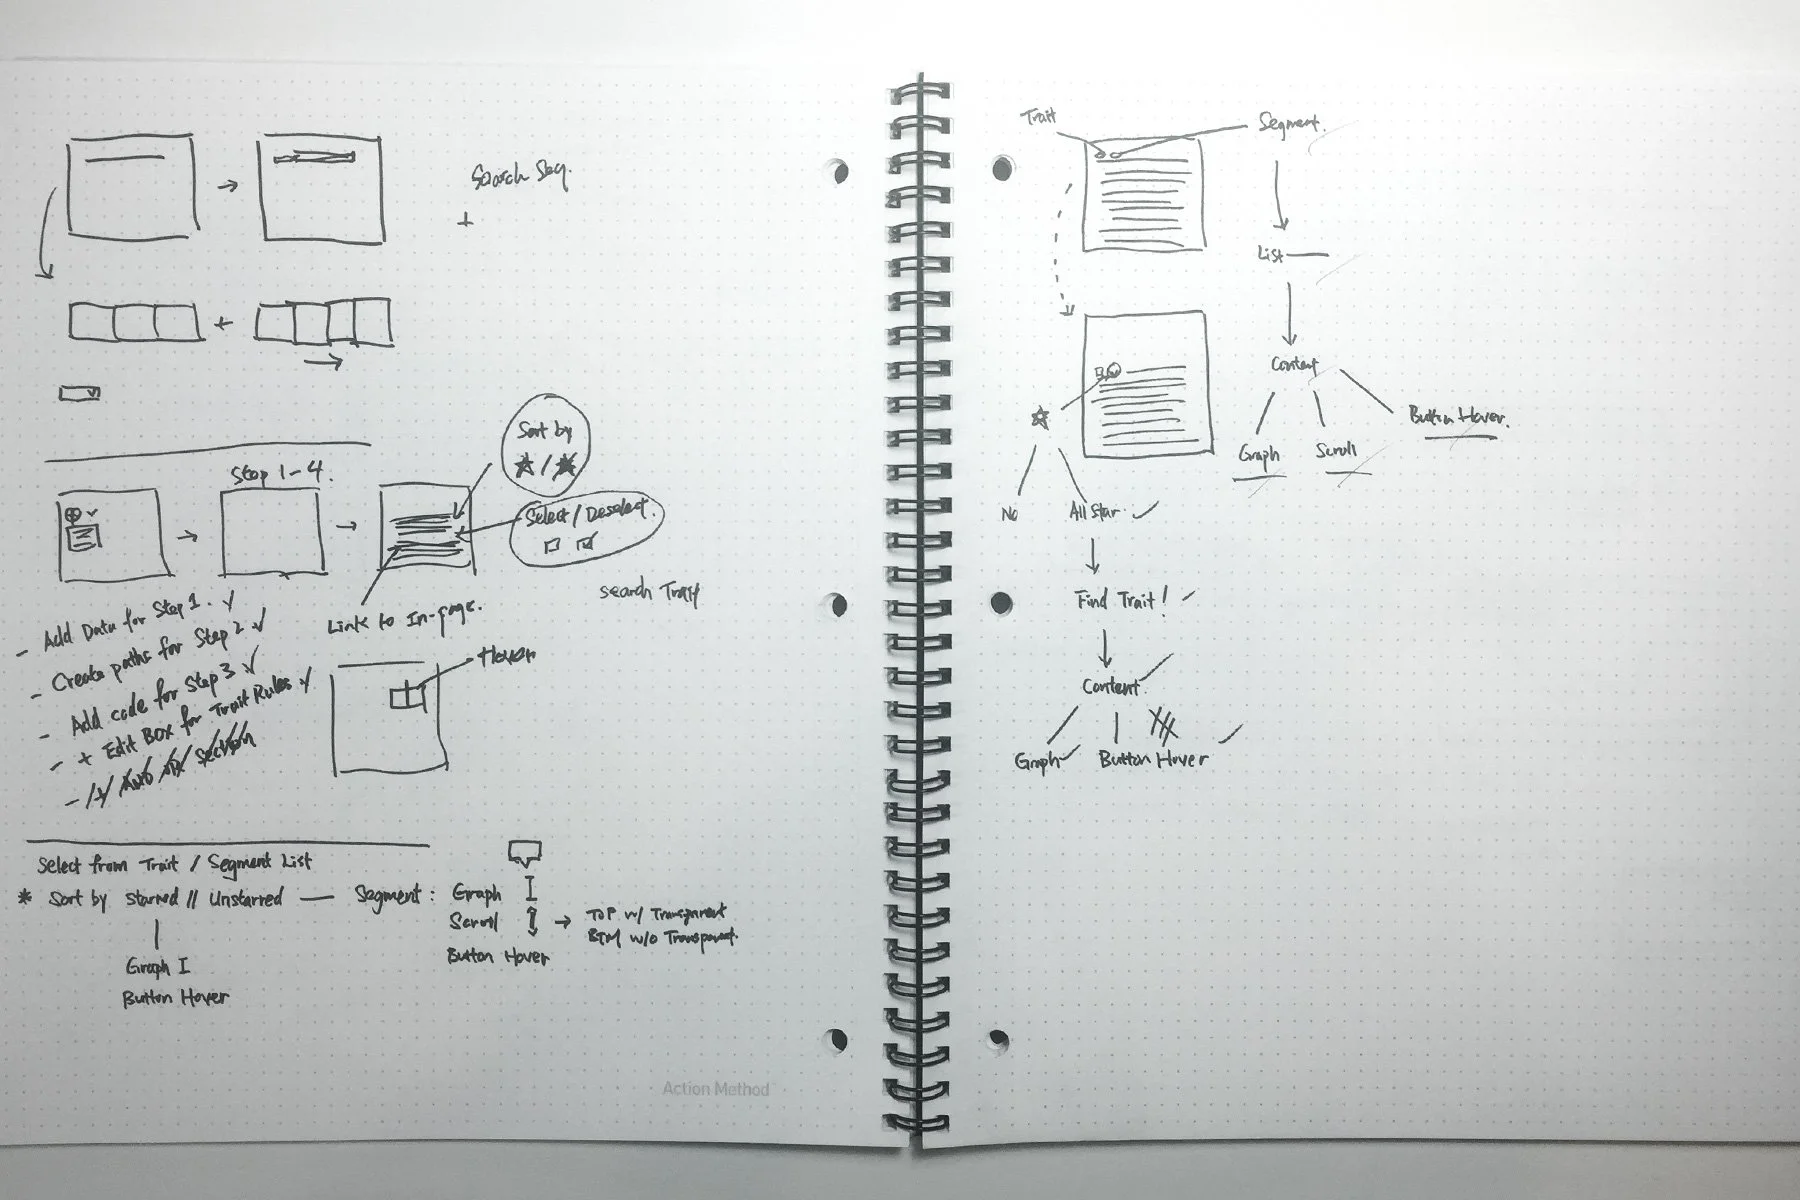 Search Seg.
+
+
Sort by
☆/★
Step 1-4.
Select / Deselect.
☐ ☑
Link to In-page.
search Trait
Hover
- Add Data for Step 1. ✓
- Create paths for Step 2 ✓
- Add code for Step 3 ✓
- + Edit Box for Trait Rules ✓
Select from Trait / Segment List
* Sort by Starred // Unstarred — Segment : Graph I
Scroll ↕ → TOP w/ Transparent
BTM w/o Transparent.
Button Hover
Graph I
Button Hover
Action Method
Trait
Segment.
List
Content
Button Hover.
Graph
Scroll
No
All Star. ✓
Find Trait! ✓
Content ✓
Graph ✓
Button Hover ✓